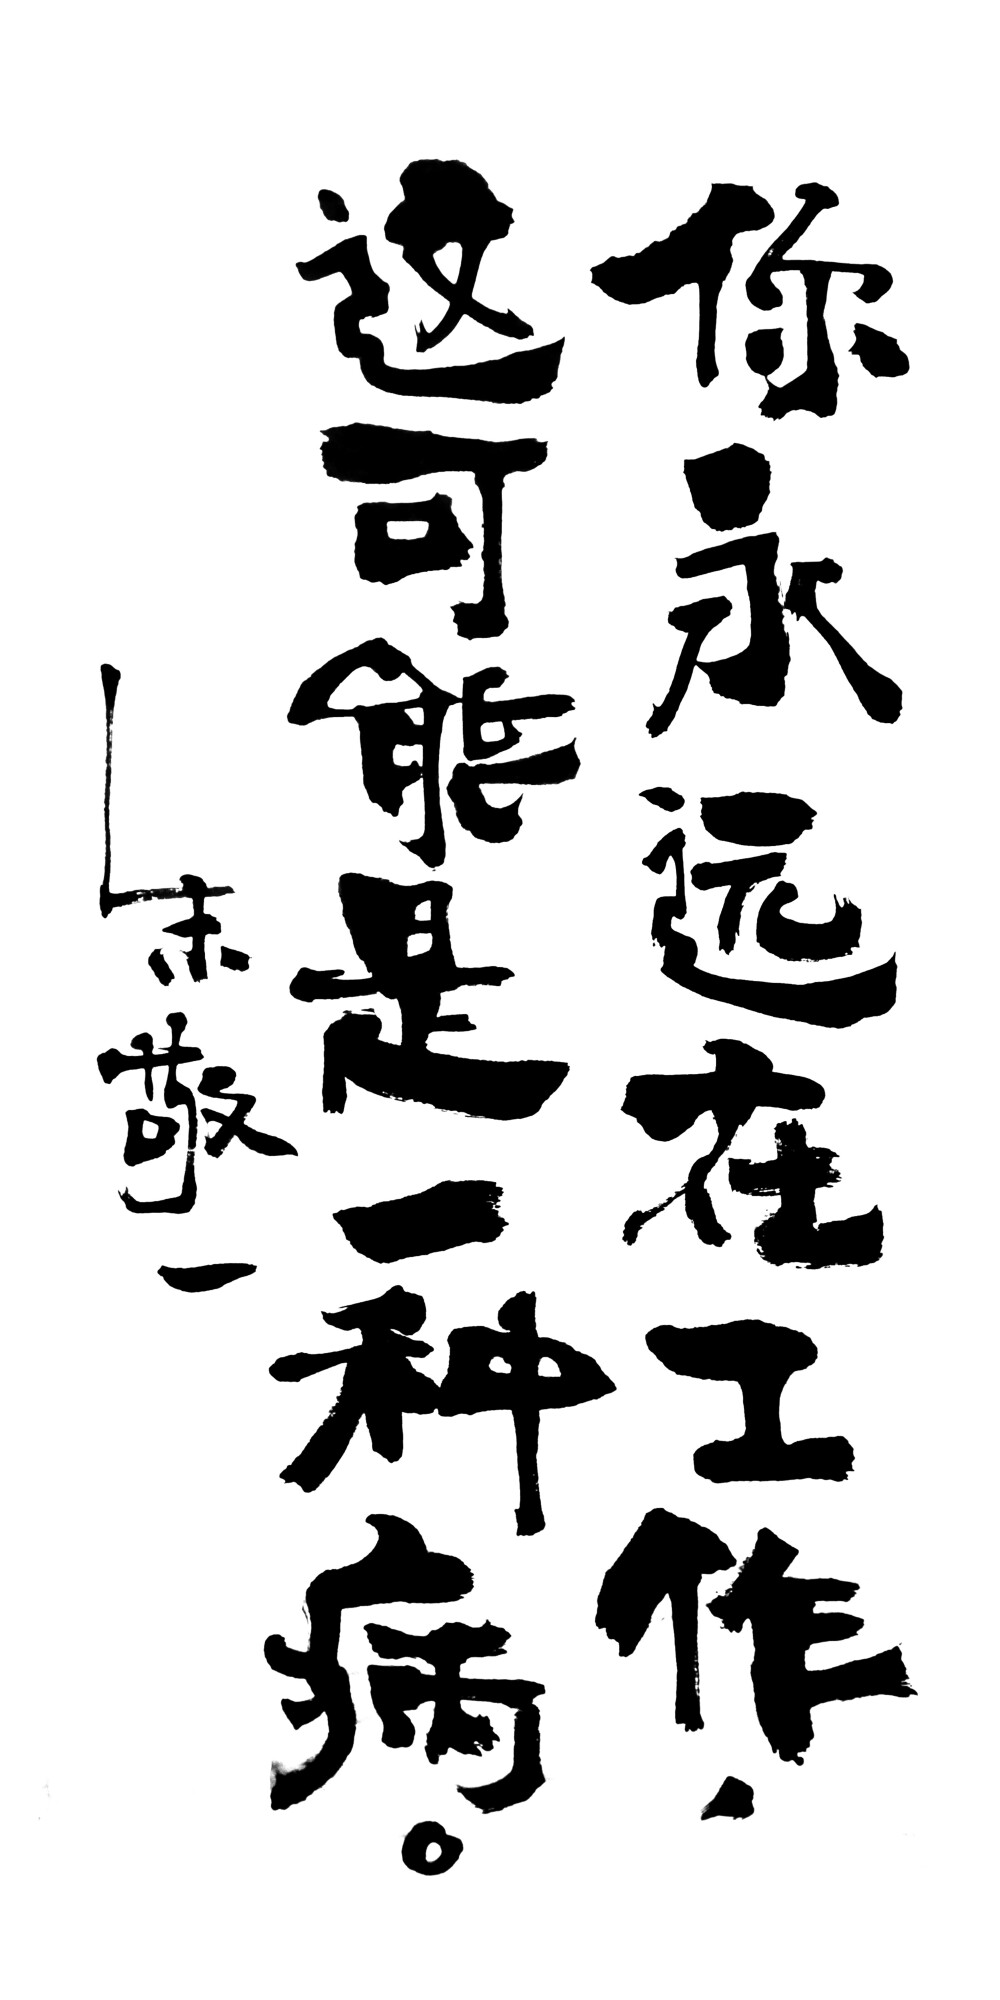 你永远在工作，
这可能是一种病。
朱敬一